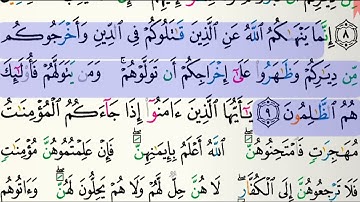 ٨ إِنَّمَا يَنْهَىٰكُمُ ٱللَّهُ عَنِ ٱلَّذِينَ قَـٰتَلُوكُمْ فِى ٱلدِّينِ وَأَخْرَجُوكُم
مِّن دِيَـٰرِكُمْ وَظَـٰهَرُوا۟ عَلَىٰٓ إِخْرَاجِكُمْ أَن تَوَلَّوْهُمْ ۚ وَمَن يَتَوَلَّهُمْ فَأُو۟لَـٰٓئِكَ
هُمُ ٱلظَّـٰلِمُونَ ٩ يَـٰٓأَيُّهَا ٱلَّذِينَ ءَامَنُوٓا۟ إِذَا جَآءَكُمُ ٱلْمُؤْمِنَـٰتُ
مُهَـٰجِرَٰتٍ فَٱمْتَحِنُوهُنَّ ۖ ٱللَّهُ أَعْلَمُ بِإِيمَـٰنِهِنَّ ۖ فَإِنْ عَلِمْتُمُوهُنَّ مُؤْمِنَـٰتٍ
فَلَا تَرْجِعُوهُنَّ إِلَى ٱلْكُفَّارِ ۖ لَا هُنَّ حِلٌّ لَّهُمْ وَلَا هُمْ يَحِلُّونَ لَهُنَّ ۖ وَءَاتُوهُم